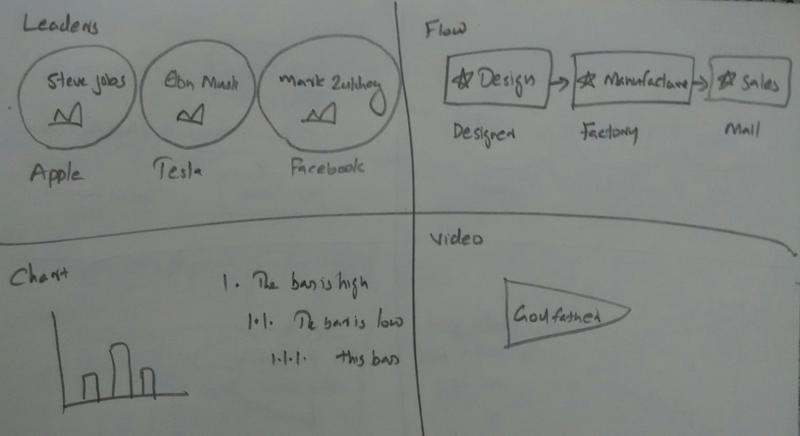 Leaders
Steve Jobs
Elon Musk
Mark
Apple
Tesla
Facebook
Flow
Design
Manufacture
Sales
Designer
Factory
Mall
Chart
1. The bar is high
1.1. The bar is low
1.1.1. this bar
Video
Godfather